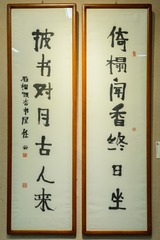 倚榻闻香终日坐
披书对月古人来